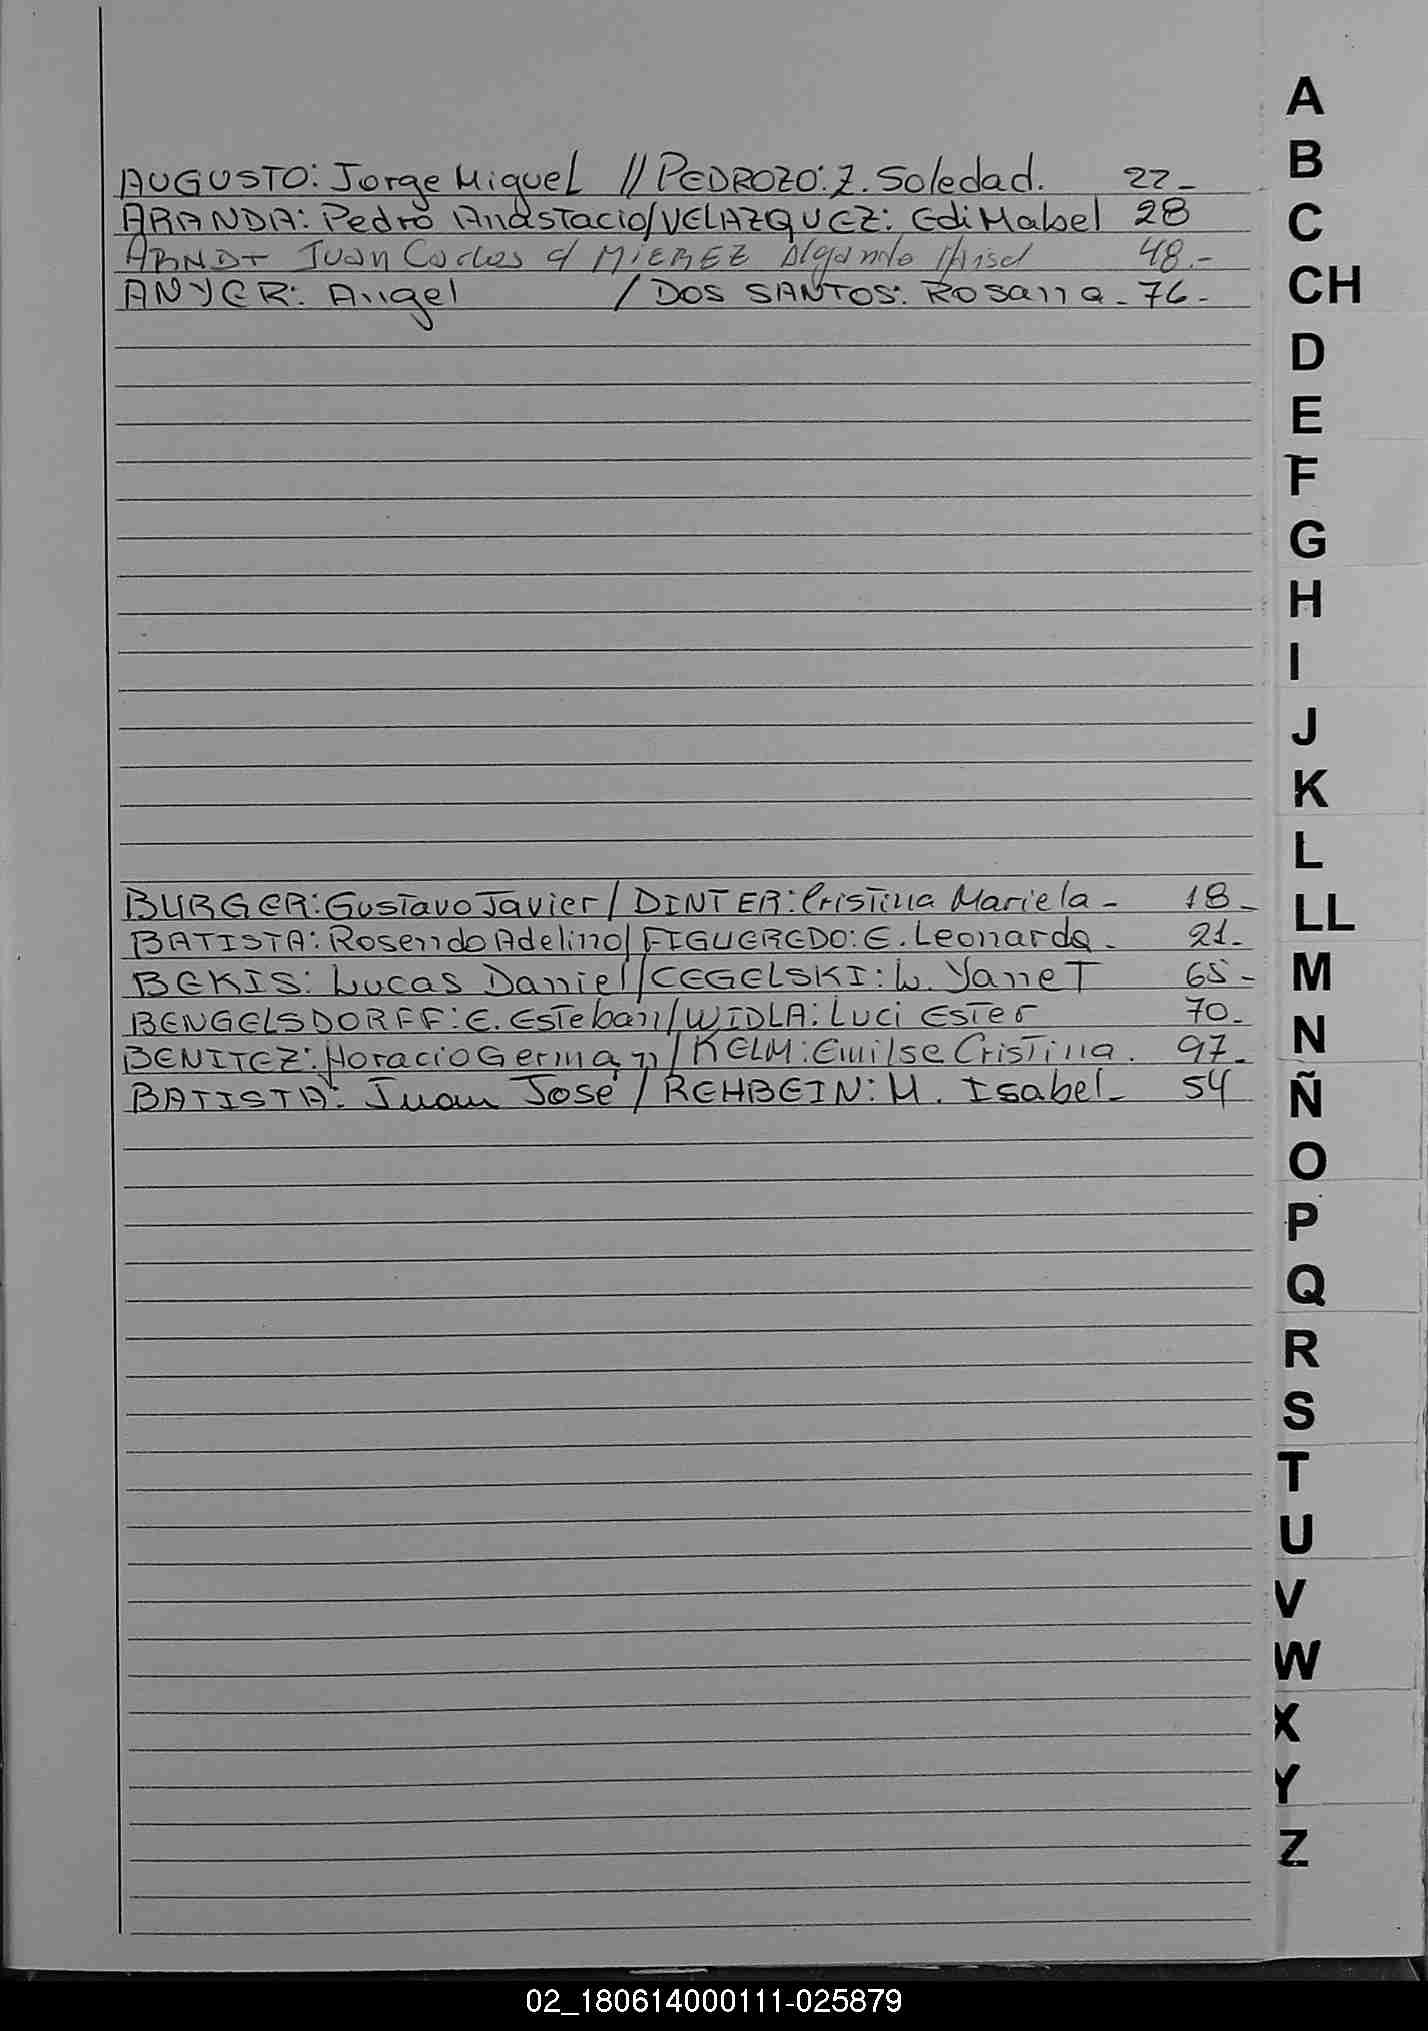 AUGUSTO: Jorge Miguel // PEDROZO: Z. Soledad. 22-
ARANDA: Pedro Anastacio/VELAZQUEZ: Edi Mabel 28
ARNDT Juan Carlos c/ MIEREZ 48.-
ANYER: Angel / DOS SANTOS: Rosana - 76-
BURGER: Gustavo Javier / DINTER: Cristina Mariela - 18-
BATISTA: Rosendo Adelino/ FIGUEREDO: E. Leonarda. 21.
BEKIS: Lucas Daniel/CEGELSKI: L. Yanet 65-
BENGELSDORFF: E. Esteban/WIDLA: Luci Ester 70.
BENITEZ: Horacio German / KELM: Emilse Cristina. 97-
BATISTA: Juan José / REHBEIN: M. Isabel- 54
A
B
C
CH
D
E
F
G
H
I
J
K
L
LL
M
N
Ñ
O
P
Q
R
S
T
U
V
W
X
Y
Z
02_180614000111-025879